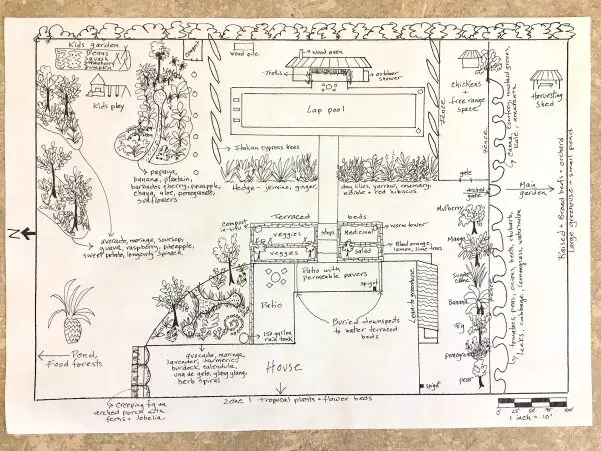 Kids garden
Beans
Squash
Strawberry
Pumpkin
Compost
Kids play
Wood pile
Wood oven
Trellis
outdoor
shower
Lap pool
fence
Chickens
+
free range
space
Fence
Harvesting
Shed
Italian cypress trees
papaya,
banana, plantain,
barbados cherry, pineapple,
chaya, aloe, pomegranate,
sunflowers
Hedge - jasmine, ginger,
day lilies, yarrow, rosemary,
edible + red hibiscus
gate
arched
gate
Main
garden
Raised + Broad beds + orchard
Large greenhouse + small ponds
N
Compost
in-situ
Terraced
beds
worm tower
veggies
veggies
steps
Medicinal
salad
Blood orange,
lemon, lime trees
avocado, moringa, soursop,
guava, raspberry, pineapple,
sweet potato, longevity spinach
Patio with
permeable pavers
spigot
Patio
Lean to greenhouse
Buried downspouts
to water terraced
beds
150 gallon
rain tank
Mulberry
Mango
Sugar
cane
Banana
Fig
pomegranate
pear
tomatoes, peas, onions, beets, rhubarb,
leeks, cabbage, lemongrass, watermelon
Pond,
Food forests
avocado, moringa,
lavender, turmeric,
burdock, calendula,
una de gato, ylang ylang,
herb spiral
House
spigot
Creeping fig on
arched porch with
ferns + lobelia
Zone 1 Tropical plants + flower beds
0' 25' 50' 75' 100'
1 inch = 10'